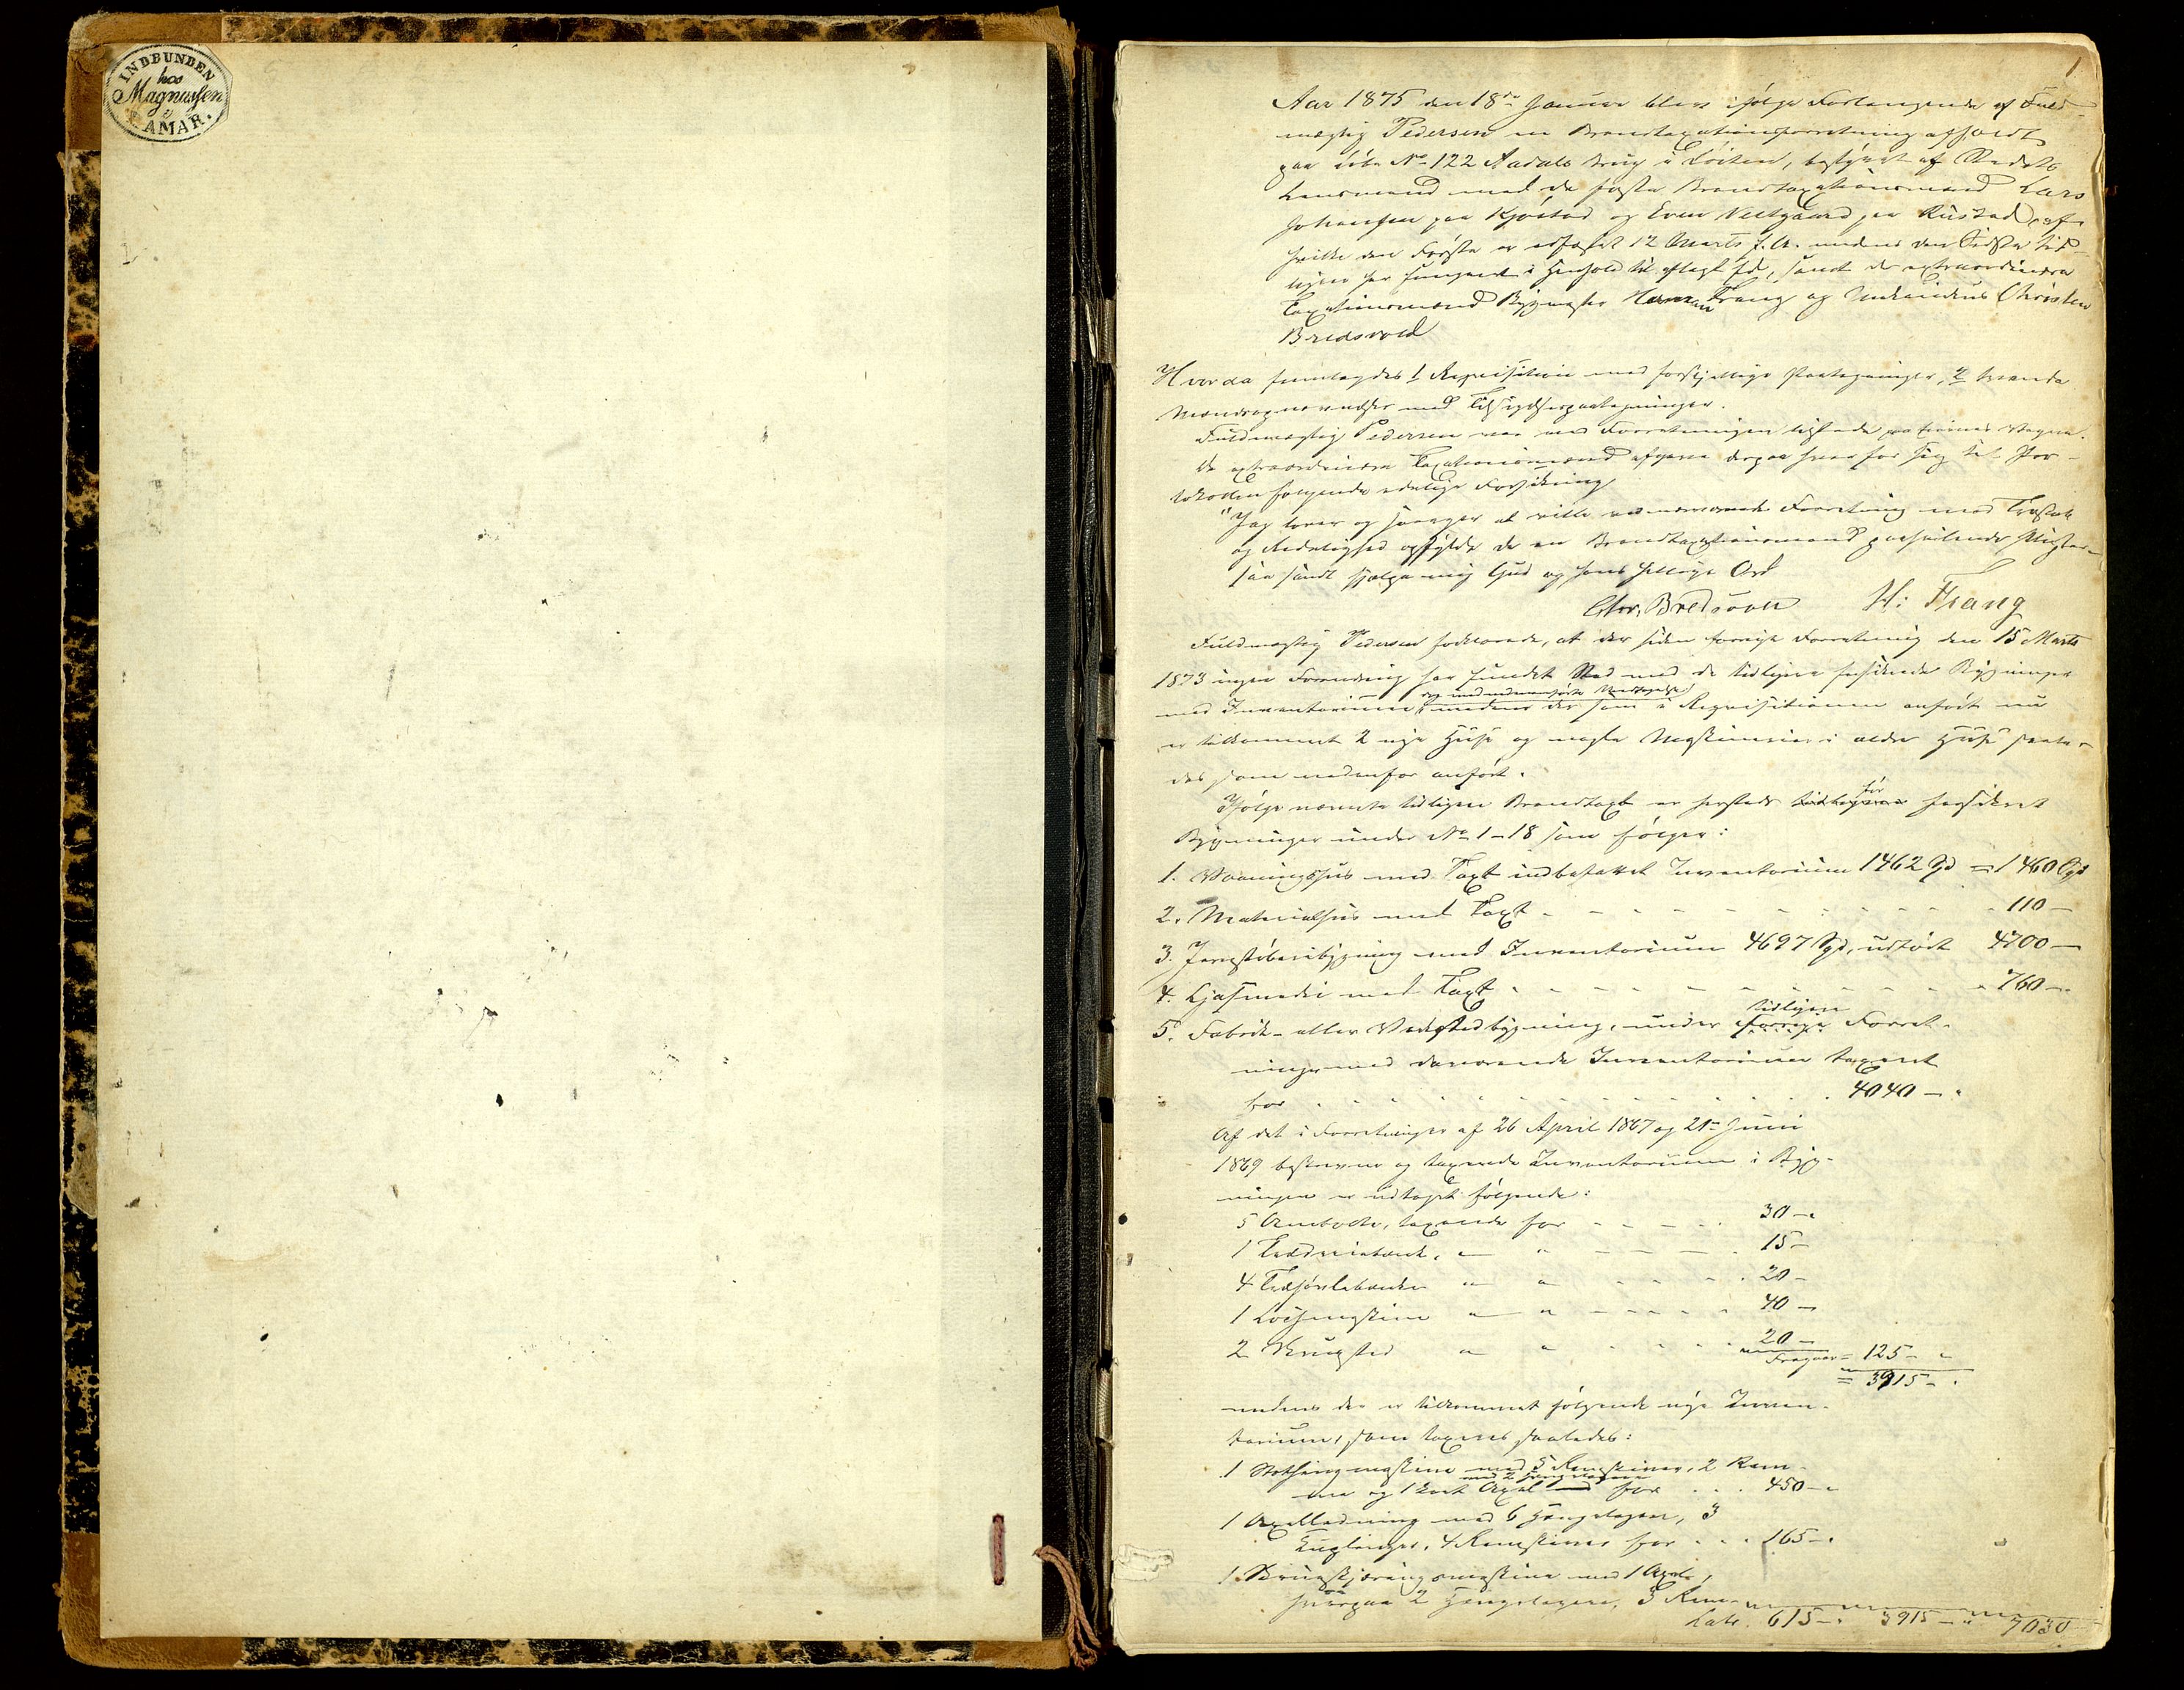 INDBUNDEN
hos
Magnussen
i
HAMAR.
1
Aar 1875 den 18de Januar blev ifølge Forlangende af Fuld-
mægtig Pedersen en Brandtaxationsforretning afholdt
paa Løbe No 122 Aadals Brug i Løiten, bestyret af Stedets
Lensmand med de faste Brandtaxationsmænd Lars
Johansen paa Kjøstad og Even Vestgaard paa Rustad, af
hvilke den Første er edfæstet 12 Marts f. A. medens den Sidste tid-
ligere har fungeret i Henhold til aflagt Ed, samt de extraordinære
Taxationsmænd Bygmester Herman Frang og Christen
Bredsvold
Hvorda fremlagdes 1 Reqvisition med forskjellige Paategninger, 2
med Tilsigelsespaategninger.
Fuldmægtig Pedersen var ved Forretningen tilstede paa Eiernes Vegne.
De extraordinære Taxationsmænd afgave derpaa hver for sig til Pro-
tokollen følgende edelige Forsikring
"Jeg lover og sværger at ville ved nærværende Forretning med Troskab
og Redelighed opfylde de en Brandtaxationsmand paahvilende Pligter
saa sandt hjælpe mig Gud og hans hellige Ord
Chr. Bredsvold H: Frang
Fuldmægtig Pedersen forklarede, at der siden forrige Forretning den 15 Marts
1873 ingen Forandring har fundet Sted med de tidligere forsikrede Bygninger
med Inventarium, dog med nedenanførte Undtagelse, medens der som i Reqvisitionen anført nu
er tilkommet 2 nye Huse og nogle Maskinerier i ældre Huse saale-
des som nedenfor anført.
Ifølge nævnte tidligere Brandtaxt er herstede før forsikret
Bygninger under No 1-18 som følger:
1. Vaaningshus med Taxt indbefattet Inventarium 1462 Spd = 1460 Spd
2. Materialhus med Taxt - - - 110 -
3. Jernstøberibygning med Inventarium 4697 Spd, udført 4700 -
4. med Taxt - - - 760 -
5. Fabrik- eller Værkstedbygning, under forrige tidligere Forret-
ninger med daværende Inventarium taxeret
for - - - 4040 -
Af det i Forretninger af 26 April 1867 og 21de Juni
1869 beskrevne og taxerede Inventarium i Byg-
ningen er udtaget følgende:
5 Ambolte, taxerede for - - - 30 -
1 Trædreiebænk, - " - - - 15 -
4 Træhøvlebænke " " - - - 20 -
1 " " - - - 40 -
2 Skruested " " - - - 20 -
Fragaar = 125 -
= 3915 -
medens der er tilkommet følgende nye Inven-
tarium, som taxeres saaledes:
1 med 5 Remskiver, 2 Rem-
me og 1 kort Axel med 2 Hængelagere for . . . 450 -
1 Axelledning med 6 Hængelagere, 3
Kuplinger, 4 Remskiver for . . . 165 -
1 Skrueskjæringsmaskine med 1 Axel,
hvorpaa 2 Hængelagere, 3 Rem-
Lats. 615 - 3915 - 7030